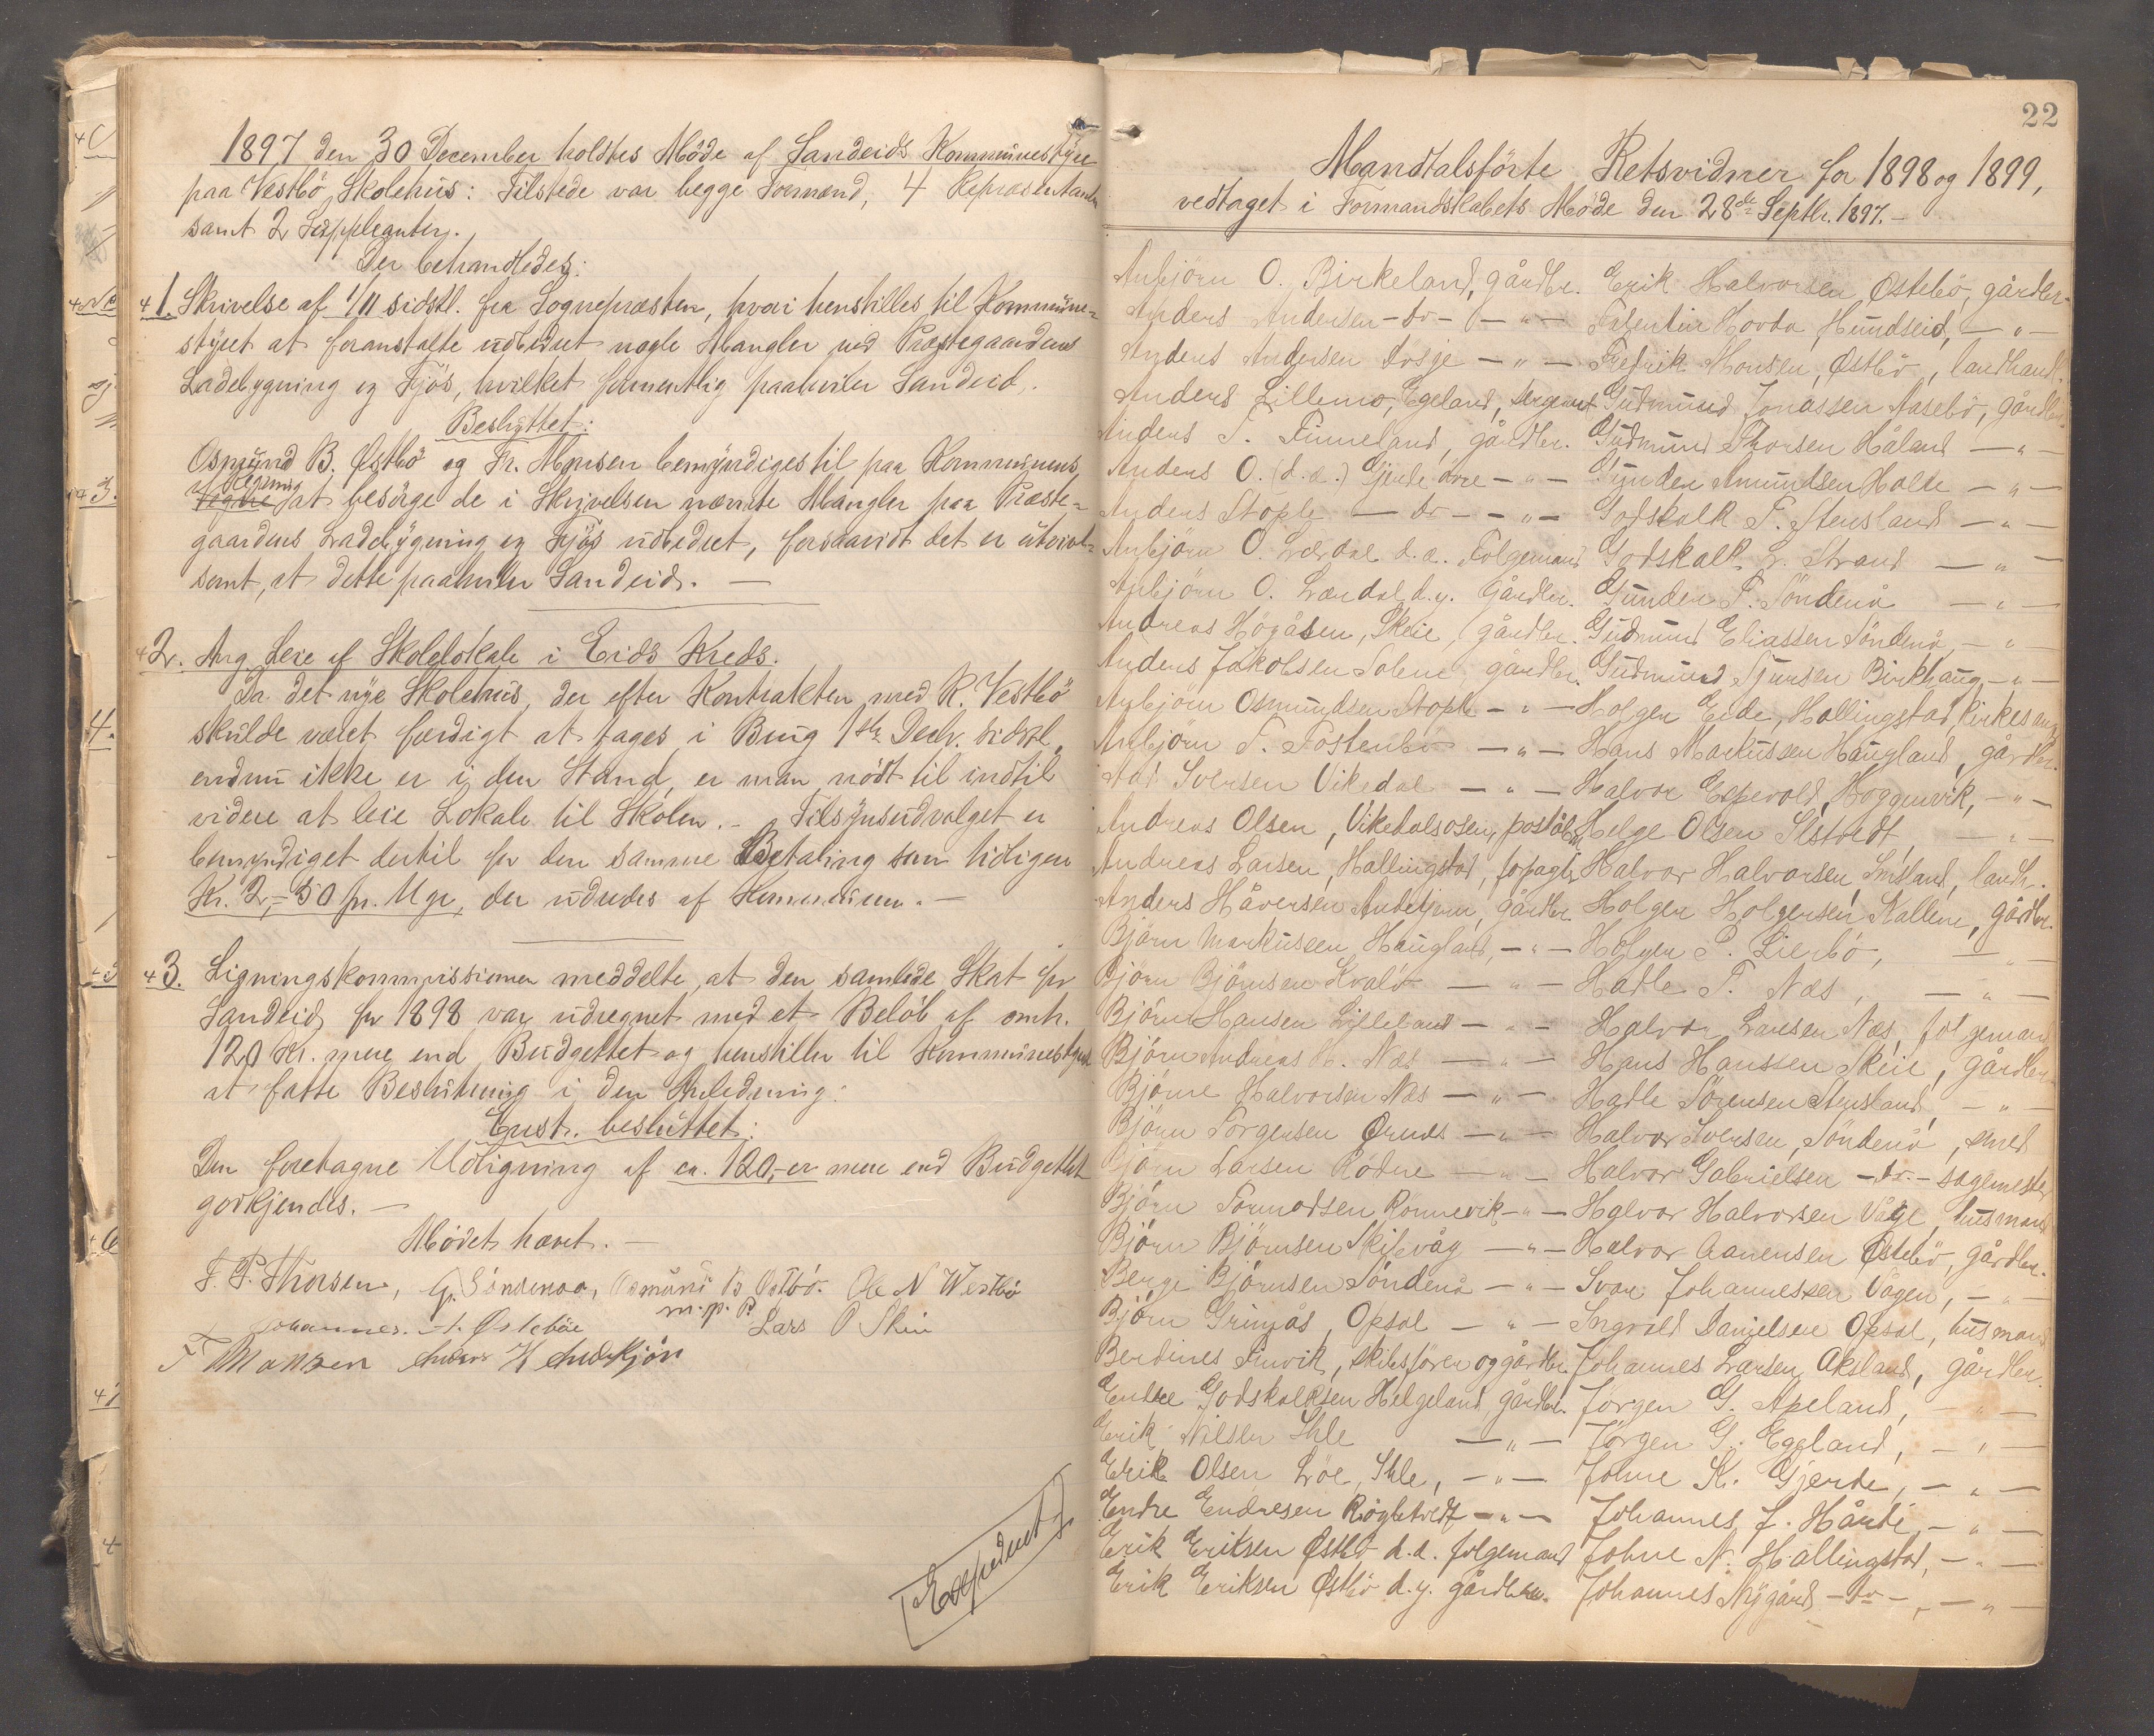 1897 den 30 December holdtes Möde af Sandeids Kommunestyre
paa Vestbö Skolehus: Tilstede var begge Formænd, 4 Repræsentanter
samt 2 Suppleanter.
Der behandledes:
1. Skrivelse af 1/11 sidstl. fra Sognepræsten, hvori henstilles til Kommune=
styret at foranstalte udbedret nogle Mangler ved Præstegaardens
Ladebygning og Fjös, hvilket formentlig paahviler Sandeid.
Besluttet:
Osmund B. Østbö og Fr. Monsen bemyndiges til paa Kommunens
Vegne at besörge de i Skrivelsen nævnte Mangler paa Præste=
gaardens Ladebygning og Fjös udbedret, forsaavidt det er utvivl=
somt, at dette paahviler Sandeid. —
2. Ang. Leie af Skolelokale i Eids Kreds.
Da det nye Skolehus, der efter Kontrakten med R. Vestbö
skulde været færdigt at tages i Brug 1ste Decbr. sidstl.
endnu ikke er i den Stand, er man nödt til indtil
videre at leie Lokale til Skolen. — Tilsynsudvalget er
bemyndiget dertil for den samme Betaling som tidligere
Kr. 2,50 pr. Uge, der udredes af Kommunen. —
3. Ligningskommissionen meddelte, at den samlede Skat for
Sandeid for 1898 var udregnet med et Belöb af omtr.
120 Kr. mere end Budgettet og henstiller til Kommunestyret
at fatte Beslutning i den Anledning:
Enst. besluttet:
Den foretagne Udligning af ca. 120,- er mere end Budgettet
godkjendes. —
Mödet hævet. —
T. P. Thorsen, G. Söndenaa, Osmund B Østbö. Ole N Westbö
m. p. P.
Johannes Østeböe Lars O Skeie
F Monsen Anders H Andkjön
Expederet
22
Mandtalsförte Retsvidner for 1898 og 1899,
vedtaget i Formandskabets Möde den 28de Septbr. 1897. —
Anbjörn O. Birkeland, gårdbr. Erik Halvorsen Østebö, gårdbr.
Anders Andersen – do – – „ – Falentin Hovda, Hundseid, – „ –
Anders Andersen Dösje – „ – Fredrik Monsen, Østbö, landhandl.
Anders Lillemo, Egeland, sergeant Gudmund Jonassen Aasebö, gårdbr.
Anders T. Finneland, gårdbr. Gudmund Thorsen Håland – „ –
Anders O. (d. æ.) Gjerde övre – „ – Gunder Amundsen Halde – „ –
Anders Stople – do – – „ – Godskalk T. Stensland – „ –
Anbjörn O. Lærdal d. æ. Folgemand Godskalk L. Strand – „ –
Anbjörn O. Lærdal d. y. Gårdbr. Gunder T. Söndenå – „ –
Andreas Högåsen, Skeie, gårdbr. Gudmund Eliassen Söndenå, – „ –
Anders Jakobsen Solem, gårdbr. Gudmund Sjursen Birkhaug, – „ –
Anbjörn Osmundsen Stople – „ – Holger Eide, Hallingstad, kirkesang.
Anbjörn T. Fostenbö – „ – Hans Markussen Haugland, gårdbr.
Sversen Vikedal – „ – Halvor Espevold, Hoggenvik, – „ –
Andreas Olsen, Vikedalsosen, poståbn. Helge Olsen Ilstvedt, – „ –
Andreas Larsen, Hallingstad, forpagter Halvor Halvorsen, Imsland, landh.
Anders Håversen, gårdbr. Holger Holgersen, Nallene, gårdbr.
Björn Markussen, Haugland, – „ – Holger P. Lierbö, – „ –
Björn Björnsen Kvalö – „ – Hadle T. Næs, – „ –
Björn Hansen Lilleland – „ – Halvor Larsen Næs, folgemand
Björn Andreas H. Næs – „ – Hans Hanssen Skeie, gårdbr.
Björne Halvorsen Næs – „ – Hadle Sörensen Stensland, – „ –
Björn Torgersen Ørnes – „ – Halvor Iversen, Söndenå, smed
Björn Larsen Rödne – „ – Halvor Gabrielsen – do. – sagemester
Björn Tormodsen Rönnevik – „ – Halvor Halvorsen Våge, husmand
Björn Björnsen Skipevåg – „ – Halvor Aanensen Østebö, gårdbr.
Berge Björnsen Söndenå – „ – Ivar Johannessen Vågen, – „ –
Björn Grimås, Opsal – „ – Ingvald Danielsen Opsal, husmand
Berdines Finvik, skibsförer og gårdbr. Johannes Larsen Aksland, gårdbr.
Endre Godskalksen Helgeland gårdbr. Jörgen G. Apeland, – „ –
Erik Nilsen Ihle – „ – Jörgen G. Egeland, – „ –
Erik Olsen Löe, Ihle, – „ – Johne K. Gjerde, – „ –
Endre Endresen Rögletvedt – „ – Johannes J. Hårde, – „ –
Erik Eriksen Østbö d. æ. folgemand Johne N. Hallingstad, – „ –
Erik Eriksen Østbö d. y. gårdbr. Johannes Nygård – do –, – „ –